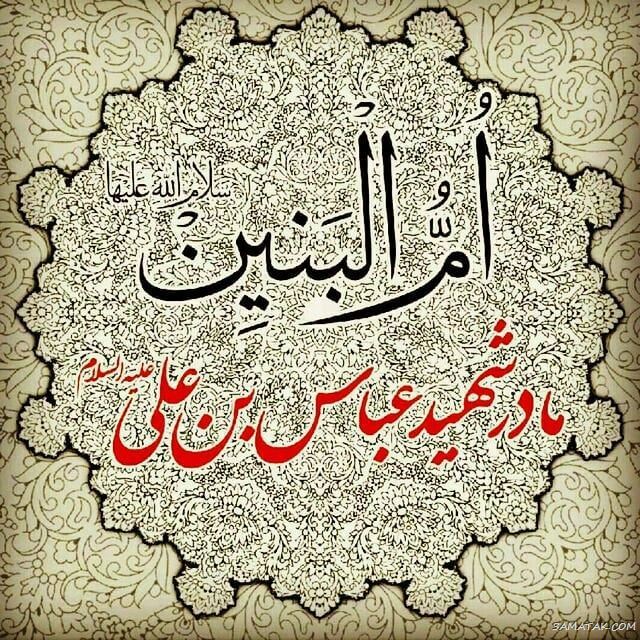 أُمُّ الْبَنِینِْ
سلام الله علیها
مادر شهید عباس بن علی علیه السلام
3AMATAK.COM